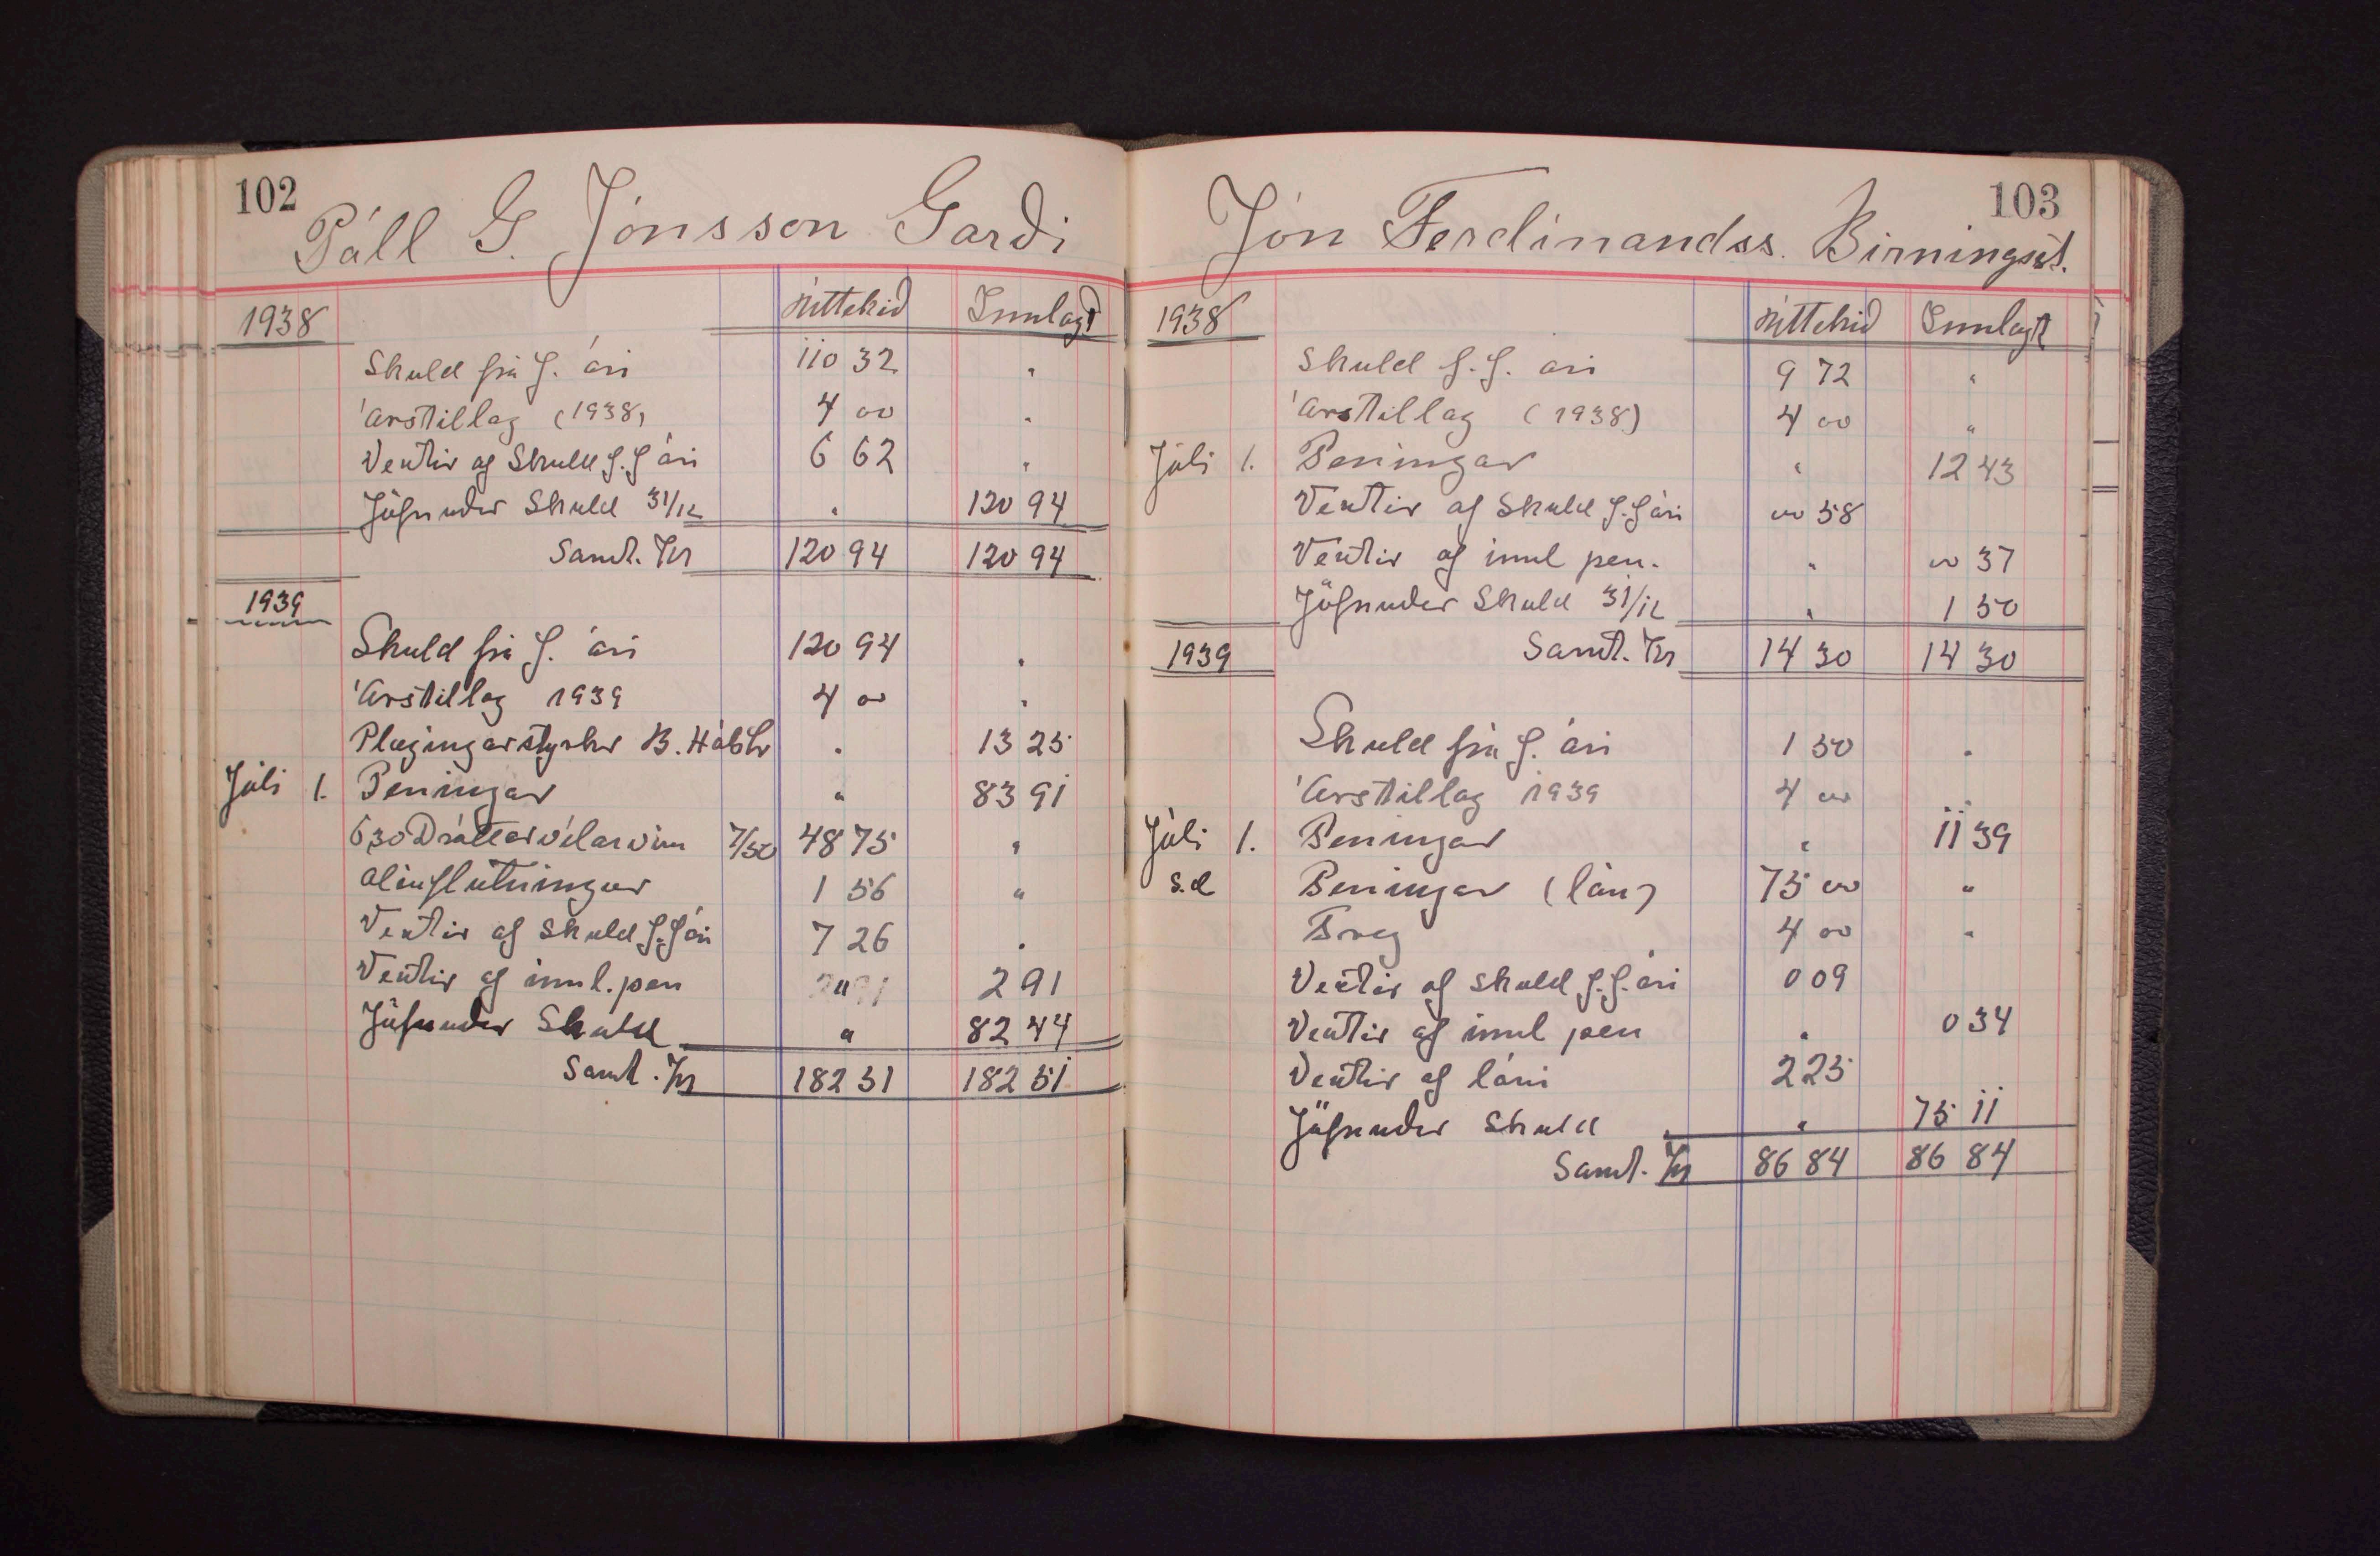 102
Páll G. Jónsson Garði
1938 Úttekið Innlagt
Skuld frá f. ári 110 32 "
Árstillag (1938) 4 00 "
Vextir af Skuld f. f ári 6 62 "
Jöfnuður Skuld 31/12 " 120 94
Samt. Kr 120 94 120 94
1939
Skuld frá f. ári 120 94 "
Árstillag 1939 4 00 "
Plægingarstyrkur B. Hálshr " 13 25
Júli 1. Peningar " 83 91
6,30 Dráttarvélarvin 7/50 48 75 "
Olíuflutningur 1 56 "
Vextir af Skuld f. f ári 7 26 "
Vextir af innl. pen " 2 91
Jöfnuður Skuld " 82 44
Samt. Kr 182 51 182 51
103
Jón Ferdinandss. Birningsst.
1938 Úttekið Innlagt
Skuld f. f. ári 9 72 "
Árstillag (1938) 4 00 "
Júli 1. Peningar " 12 43
Vextir af Skuld f. f ári 00 58
Vextir af innl pen. " 00 37
Jöfnuður Skuld 31/12 " 1 50
1939 Samt. Kr 14 30 14 30
Skuld frá f. ári 1 50 "
Árstillag 1939 4 00 "
Júli 1. Peningar " 11 39
s.d Peningar (lán) 75 00 "
4 00 "
Vextir af skuld f. f. ári 0 09
Vextir af innl pen " 0 34
Vextir af láni 2 25
Jöfnuður Skuld " 75 11
Samt. Kr 86 84 86 84